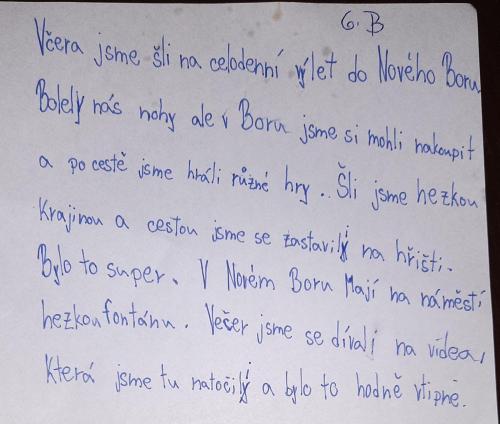 6. B
Včera jsme šli na celodenní výlet do Nového Boru
Bolely nás nohy ale v Boru jsme si mohli nakoupit
a po cestě jsme hráli různé hry. Šli jsme hezkou
krajinou a cestou jsme se zastavili na hřišti.
Bylo to super. V Novém Boru Mají na náměstí
hezkou fontánu. Večer jsme se dívali na videa,
která jsme tu natočili a bylo to hodně vtipné.